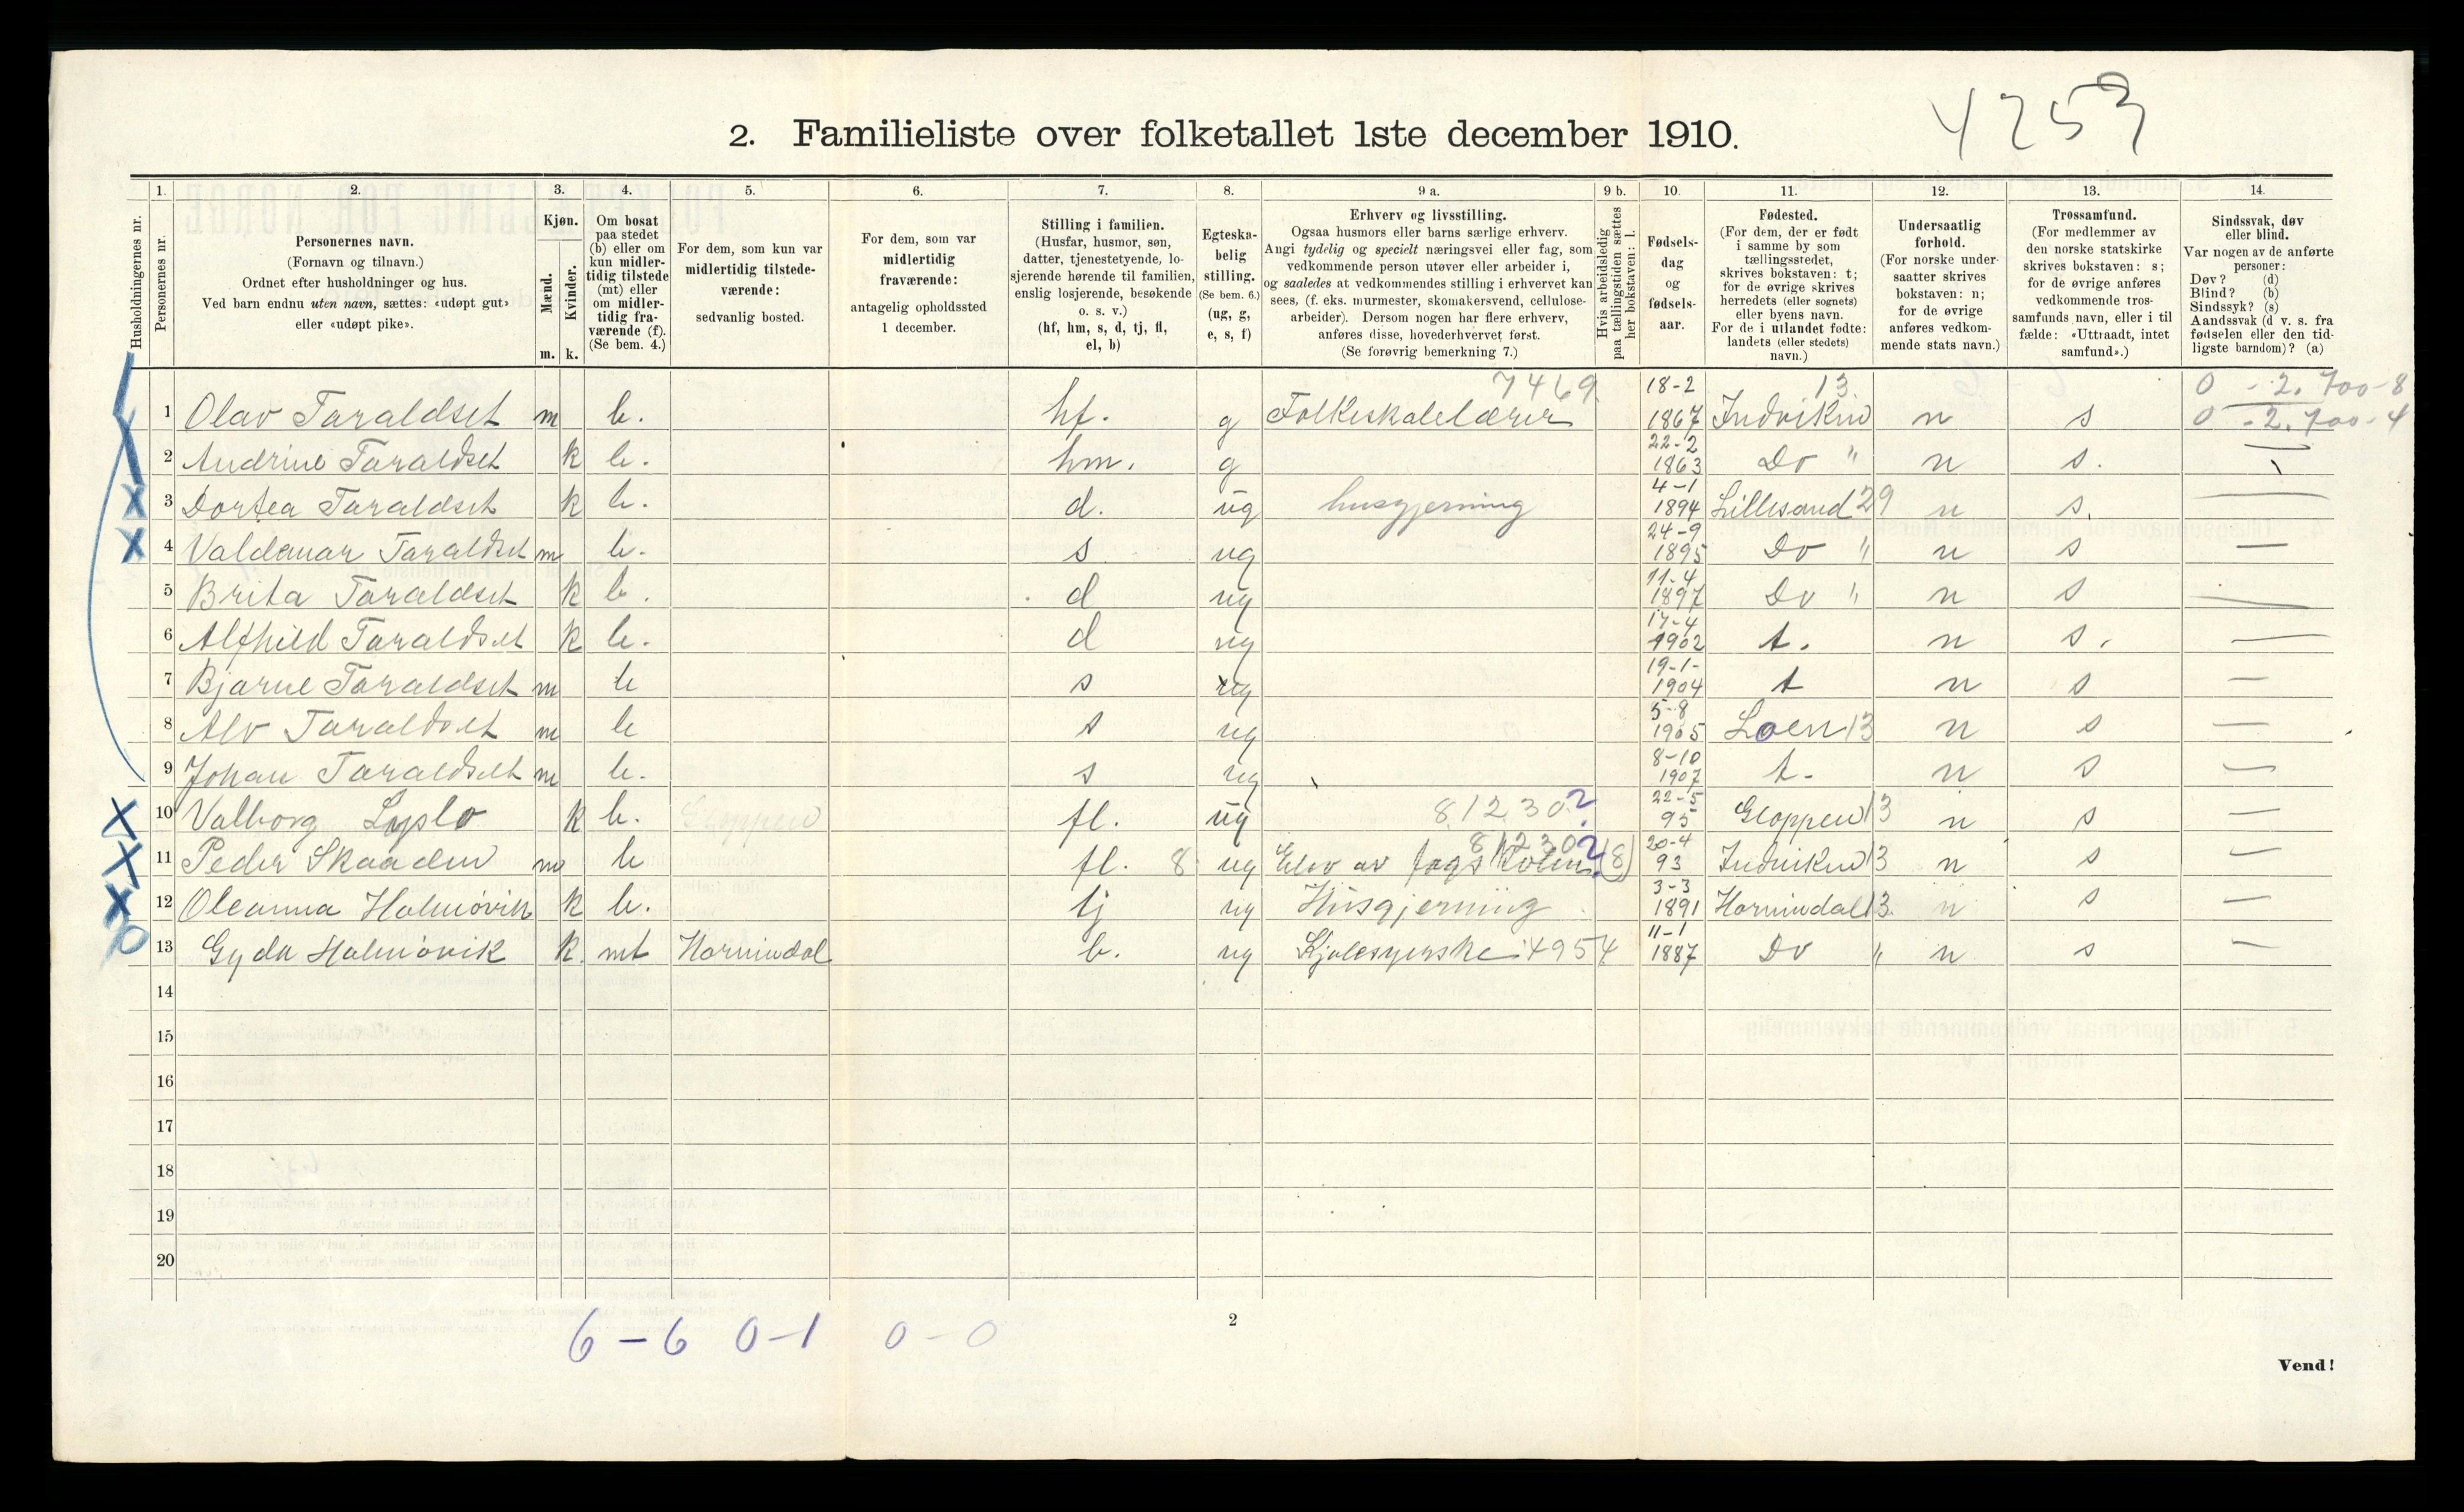 4253
2. Familieliste over folketallet 1ste december 1910.
Husholdningernes nr.
1. Personernes nr.
2. Personernes navn.
(Fornavn og tilnavn.)
Ordnet efter husholdninger og hus.
Ved barn endnu uten navn, sættes: «udøpt gut»
eller «udøpt pike».
3. Kjøn.
Mænd. m.
Kvinder. k.
4. Om bosat
paa stedet
(b) eller om
kun midler-
tidig tilstede
(mt) eller
om midler-
tidig fra-
værende (f).
(Se bem. 4.)
5. For dem, som kun var
midlertidig tilstede-
værende:
sedvanlig bosted.
6. For dem, som var
midlertidig
fraværende:
antagelig opholdssted
1 december.
7. Stilling i familien.
(Husfar, husmor, søn,
datter, tjenestetyende, lo-
sjerende hørende til familien,
enslig losjerende, besøkende
o. s. v.)
(hf, hm, s, d, tj, fl,
el, b)
8. Egteska-
belig
stilling.
(Se bem. 6.)
(ug, g,
e, s, f)
9 a. Erhverv og livsstilling.
Ogsaa husmors eller barns særlige erhverv.
Angi tydelig og specielt næringsvei eller fag, som
vedkommende person utøver eller arbeider i,
og saaledes at vedkommendes stilling i erhvervet kan
sees, (f. eks. murmester, skomakersvend, cellulose-
arbeider). Dersom nogen har flere erhverv,
anføres disse, hovederhvervet først.
(Se forøvrig bemerkning 7.)
9 b. Hvis arbeidsledig
paa tællingstiden sættes
her bokstaven: l.
10. Fødsels-
dag
og
fødsels-
aar.
11. Fødested.
(For dem, der er født
i samme by som
tællingsstedet,
skrives bokstaven: t;
for de øvrige skrives
herredets (eller sognets)
eller byens navn.
For de i utlandet fødte:
landets (eller stedets)
navn.)
12. Undersaatlig
forhold.
(For norske under-
saatter skrives
bokstaven: n;
for de øvrige
anføres vedkom-
mende stats navn.)
13. Trossamfund.
(For medlemmer av
den norske statskirke
skrives bokstaven: s;
for de øvrige anføres
vedkommende tros-
samfunds navn, eller i til
fælde: «Uttraadt, intet
samfund».)
14. Sindssvak, døv
eller blind.
Var nogen av de anførte
personer:
Døv? (d)
Blind? (b)
Sindssyk? (s)
Aandssvak (d v. s. fra
fødselen eller den tid-
ligste barndom)? (a)
7469. 18-2 13. 0 - 2.700-8
1 Olav Taraldset m b. hf. g Folkeskolelærer 1867 Indviken n s 0 - 2.700-4
2 Andrine Taraldset k b. hm. g 22-2 1863 Do " n s. —
3 Dortea Taraldset k b. d. ug husgjerning 4-1 1894 Lillesand 29 n s. —
4 Valdemar Taraldset m b. s ug 24-9 1895 Do " n s —
5 Brita Taraldset k b. d ug 11-4 1897 Do " n s —
6 Alfhild Taraldset k b. d ug 17-4 1902 t. n s. —
7 Bjarne Taraldset m b s ug 19-1- 1904 t n s —
8 Alv Taraldset m b s ug 5-8 1905 Loen 13 n s —
9 Johan Taraldset m b. s ug 8-10 1907 t. n s —
10 Valborg k b. Gloppen fl. ug 81230? 22-5 95 Gloppen 13 n s —
11 Peder Skaaden m b fl. 8 ug 81230? Elev av (8) 20-4 93 Indviken 13 n s —
12 Oleanna Holmøvik k b. tj ug Husgjerning 3-3 1891 Hornindal 13. n s —
13 Gyda Holmøvik k. mt Hornindal b. ug Kjolesyerske 4954 11-1 1887 Do " n s —
14
15
16
17
18
19
20
6 - 6 0-1 0-0
2
Vend!